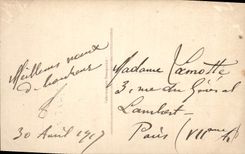 Meilleurs vœux
de bonheur
30 Avril 1917
Madame Lamotte
3, rue du Général
Lambert
Paris (VIIème)